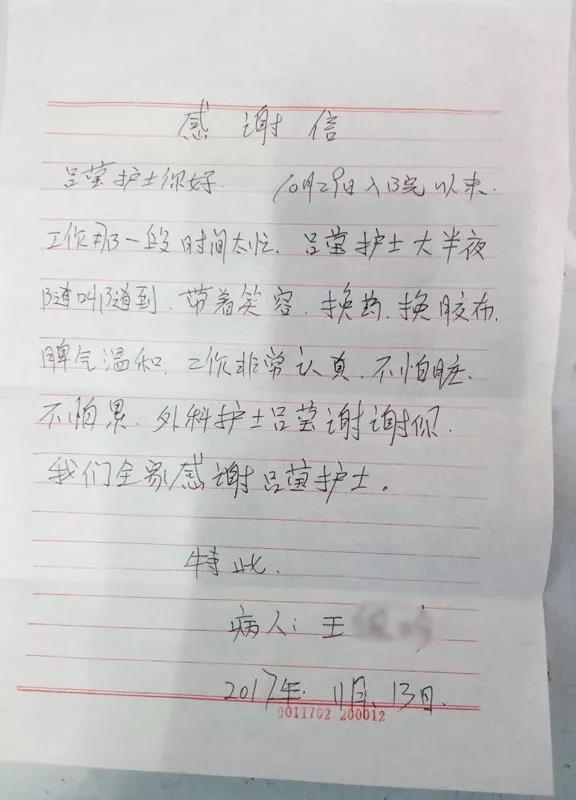 感谢信
吕莹护士你好. 10月29日入院以来.
工作那一段时间太忙、吕莹护士大半夜
随叫随到、带着笑容、换药、换胶布、
脾气温和、工作非常认真、不怕脏、
不怕累、外科护士吕莹谢谢你.
我们全家感谢吕莹护士.
特此.
病人: 王
2017年. 11月. 13日.
0011702 200012